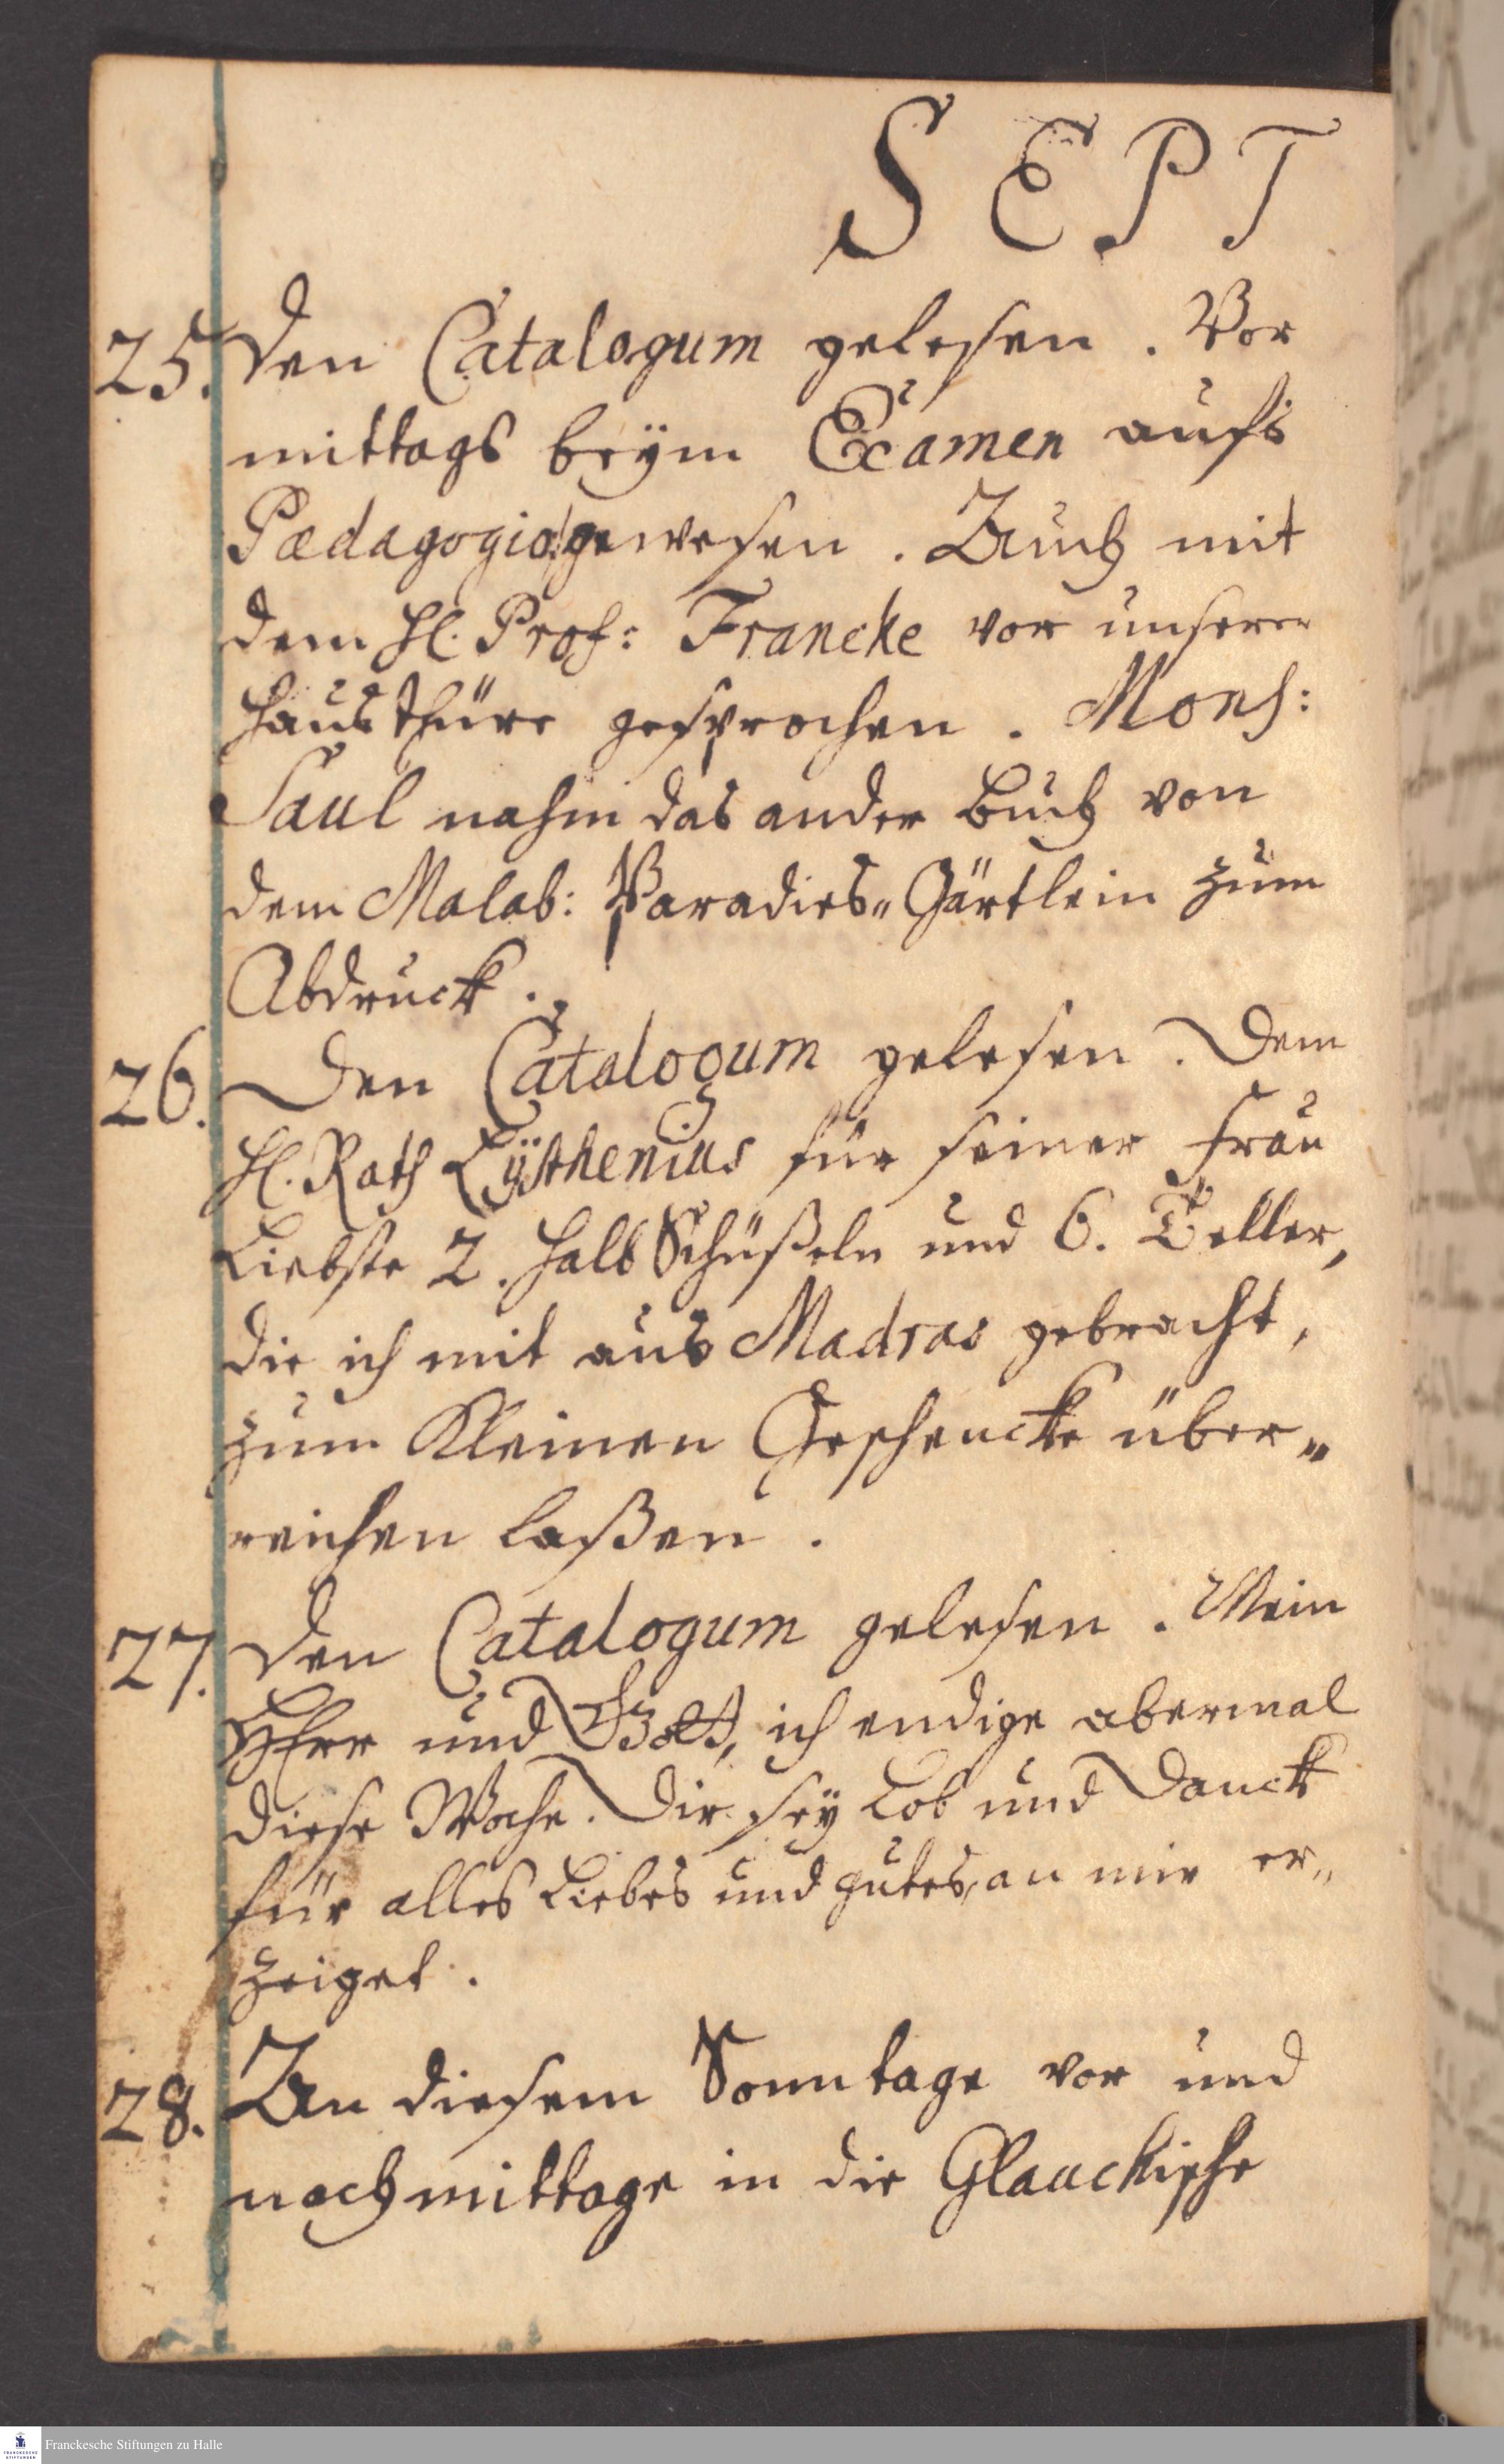 SEPT
25. Den Catalogum gelesen. Vor
mittags beÿm Examen aufs
Pædagogio gewesen. Auch mit
dem H. Prof: Francke vor unserer
Hausthüre gesprochen. Mons:
Saul nahm das ander Buch von
dem Malab: Paradies„Gärtlein zum
Abdruck.
26. Den Catalogum gelesen. Dem
H. Rath Lÿsthenius für seiner Frau
Liebste 2. halb Schüßeln und 6. Teller,
die ich mit aus Madras gebracht,
zum Kleinen Geschencke über„
reichen laßen.
27. Den Catalogum gelesen. Mein
HErr und Gott, ich endige abermal
diese Woche. Dir seÿ Lob und Danck
für alles Liebes und gutes, an mir er„
zeiget.
28. An diesem Sonntage vor und
nachmittage in die Glauchische
Franckesche Stiftungen zu Halle
FRANCKESCHE
STIFTUNGEN